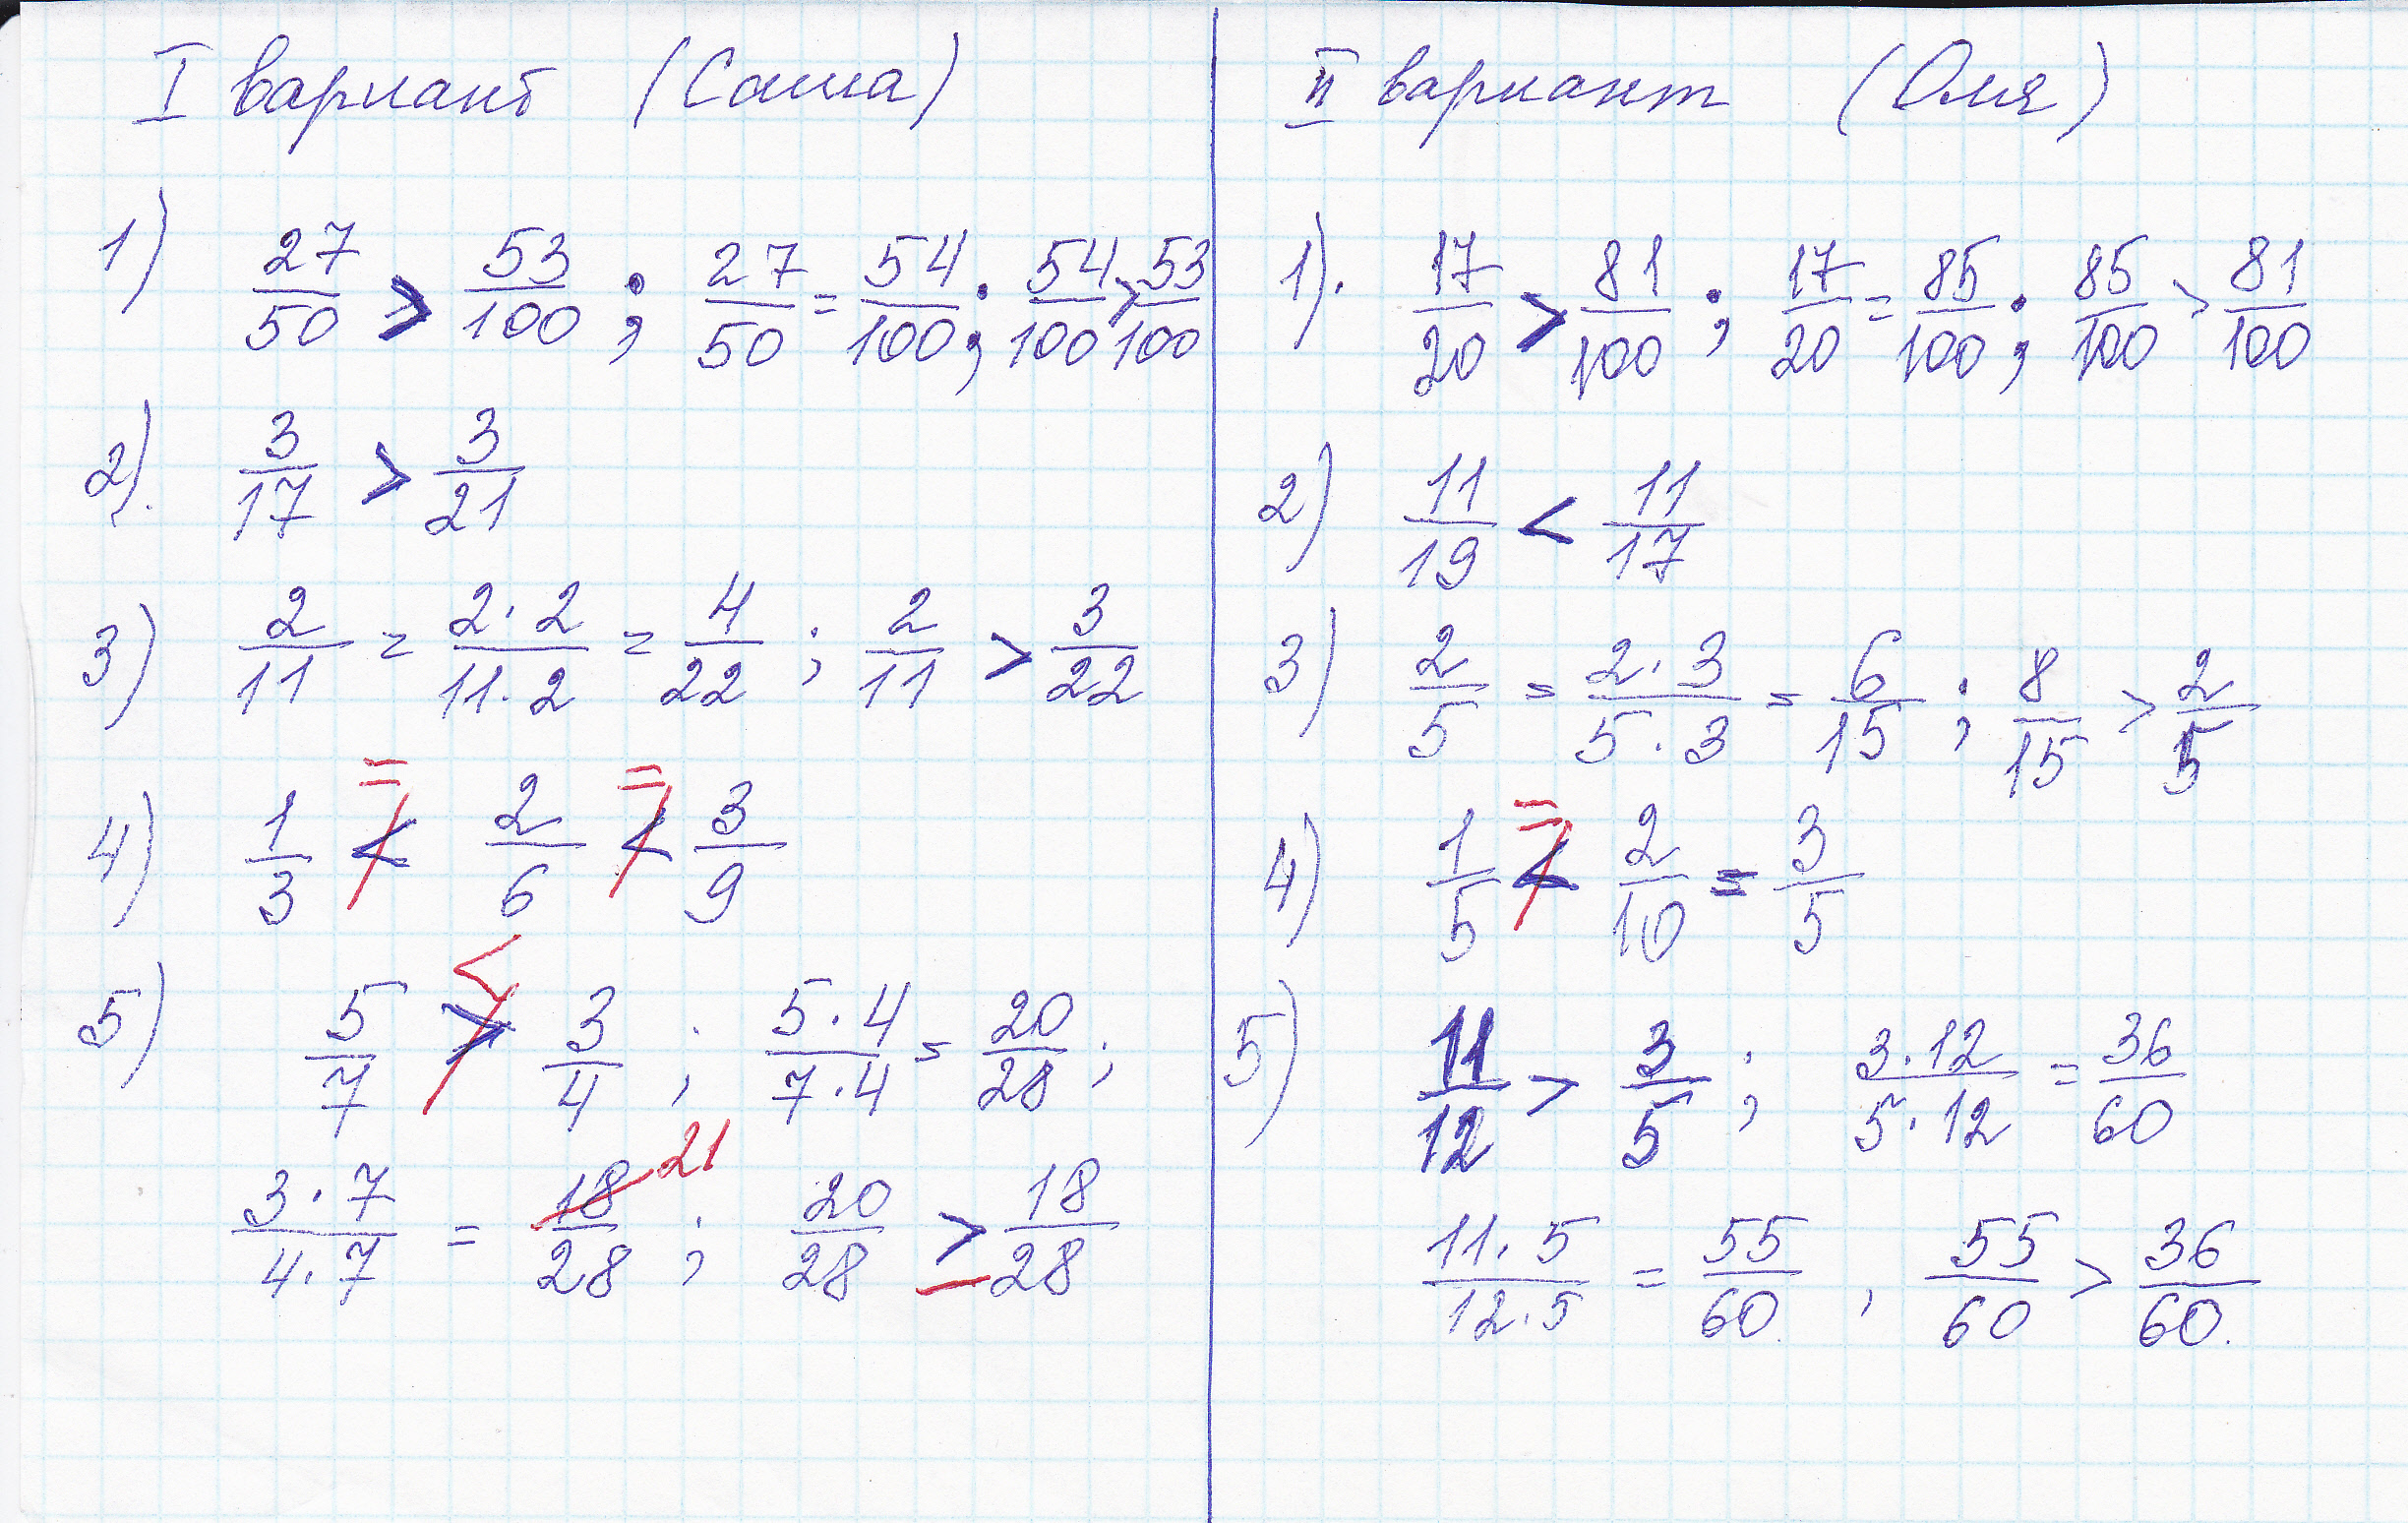 I вариант (Саша)
1) 27/50 > 53/100 ; 27/50 = 54/100 ; 54/100 > 53/100
2). 3/17 > 3/21
3) 2/11 = 2·2/11·2 = 4/22 ; 2/11 > 3/22
= =
4) 1/3 < 2/6 < 3/9
<
5) 5/7 > 3/4 ; 5·4/7·4 = 20/28 ;
21
3·7/4·7 = 18/28 ; 20/28 > 18/28
II вариант (Оля)
1). 17/20 > 81/100 ; 17/20 = 85/100 ; 85/100 > 81/100
2) 11/19 < 11/17
3) 2/5 = 2·3/5·3 = 6/15 ; 8/15 > 2/5
=
4) 1/5 < 2/10 = 3/5
5) 11/12 > 3/5 ; 3·12/5·12 = 36/60
11·5/12·5 = 55/60 , 55/60 > 36/60.